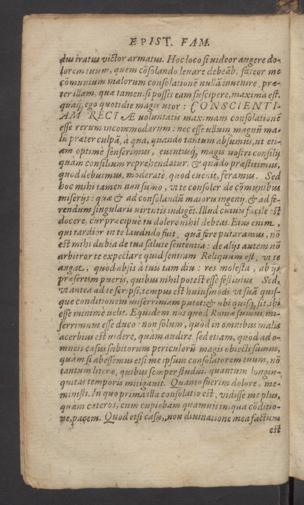 EPIST. FAM.
diu iratus victor armatus. Hoc loco si videor augere do-
lorem tuum, quem cõsolando levare debeãb. fateor me
cõmunium malorum consolationem nullã invenire, præ-
ter illam. quæ tamen, si possis eam suscipere, maxima est.
quaq́; ego quotidie magis utor: CONSCIENTI-
AM RECTÆ voluntatis maximam consolationẽ
esse rerum incommodarum: nec esse ullum magnũ ma-
lũ præter culpã, à qua, quando tantum absumus, ut eti-
am optime senserimus, eventusq́; magis nostri consilij
quam consilium reprehendatur. & quãdo præstitimus,
quod debuimus, moderate, quod evenit, feramus. Sed
hoc mihi tamen non sumo, ut te consoler de cõmunibus
miserijs: quæ & ad consolandũ maioris ingenij, & ad fe-
rendum singularis virtutis indigẽt. Illud cuivis facile est
docere, cur præcipue tu dolere nihil debeas. Eius enim,
qui tardior in te levãdo fuit, quã fore putaramus, nõ
est mihi dubia de tua salute sententia: de alijs autem nõ
arbitror te expectare quid sentiam Reliquum est, ut te
angat, quod absis à tuis tam diu: res molesta, ab ijs
præsertim pueris, quibus nihil potest esse festivius Sed,
ut antea ad te scripsi, tempus est huiusmodi, ut suã quis-
que conditionem miserrimam putet: & ubi quisq́; sit, ibi
esse minime velit. Equidem nos quod Romæ sumus, mi-
serrimum esse duco non solum, quòd in omnibus malis
acerbius est videre, quam audire. sed etiam, quod ad o-
mneis casus subitorum periculorũ magis obiecti sumus,
quam si abessemus etsi me ipsum consolatorem tuum, nõ
tantum literæ, quibus semper studui. quantum longin-
quitas temporis mitigavit. Quanto fuerim dolore, me-
ministi. In quo prima illa consolatio est, vidisse me plus,
quam ceteros, cum cupiebam quamvis iniqua cõditio-
ne, pacem. Quod etsi casu, non divinatione mea factum
est